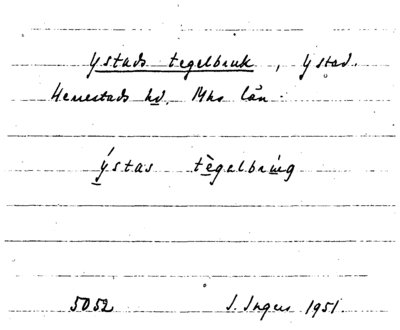 Ystads tegelbruk, Ystad.
Herrestads hd. Mhs län.
ýstas tègelbrúg
5052 I. Ingers 1951.